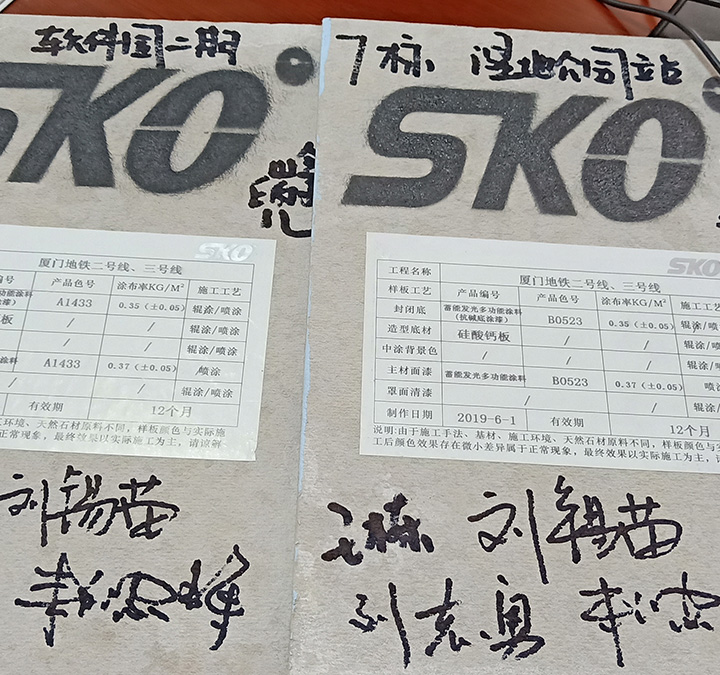 软件园二期
SKO
SKO
厦门地铁二号线、三号线
编号 产品色号 涂布率KG/M² 施工工艺
A1433 0.35(±0.05) 辊涂/喷涂
板 / / 辊涂/喷涂
/ / 辊涂/喷涂
涂料 A1433 0.37(±0.05) 喷涂
/ / / 辊涂/喷涂
有效期 12个月
工环境、天然石材原料不同,样板颜色与实际施
正常现象,最终效果以实际施工为主,请谅解
刘锡苗
7标 湿地公园站
SKO
SKO
工程名称 厦门地铁二号线、三号线
样板工艺 产品编号 产品色号 涂布率KG/M² 施工工艺
封闭底 蓄能发光多功能涂料(抗碱底涂漆) B0523 0.35(±0.05) 辊涂/喷
造型底材 硅酸钙板 / / 辊涂/喷
中涂背景色 / / / 辊涂/喷
主材面漆 蓄能发光多功能涂料 B0523 0.37(±0.05) 喷
罩面清漆 / / / 辊涂/喷
制作日期 2019-6-1 有效期 12个月
说明:由于施工手法、基材、施工环境、天然石材原料不同,样板颜色与实
工后颜色效果存在微小差异属于正常现象,最终效果以实际施工为主,请
刘锡苗